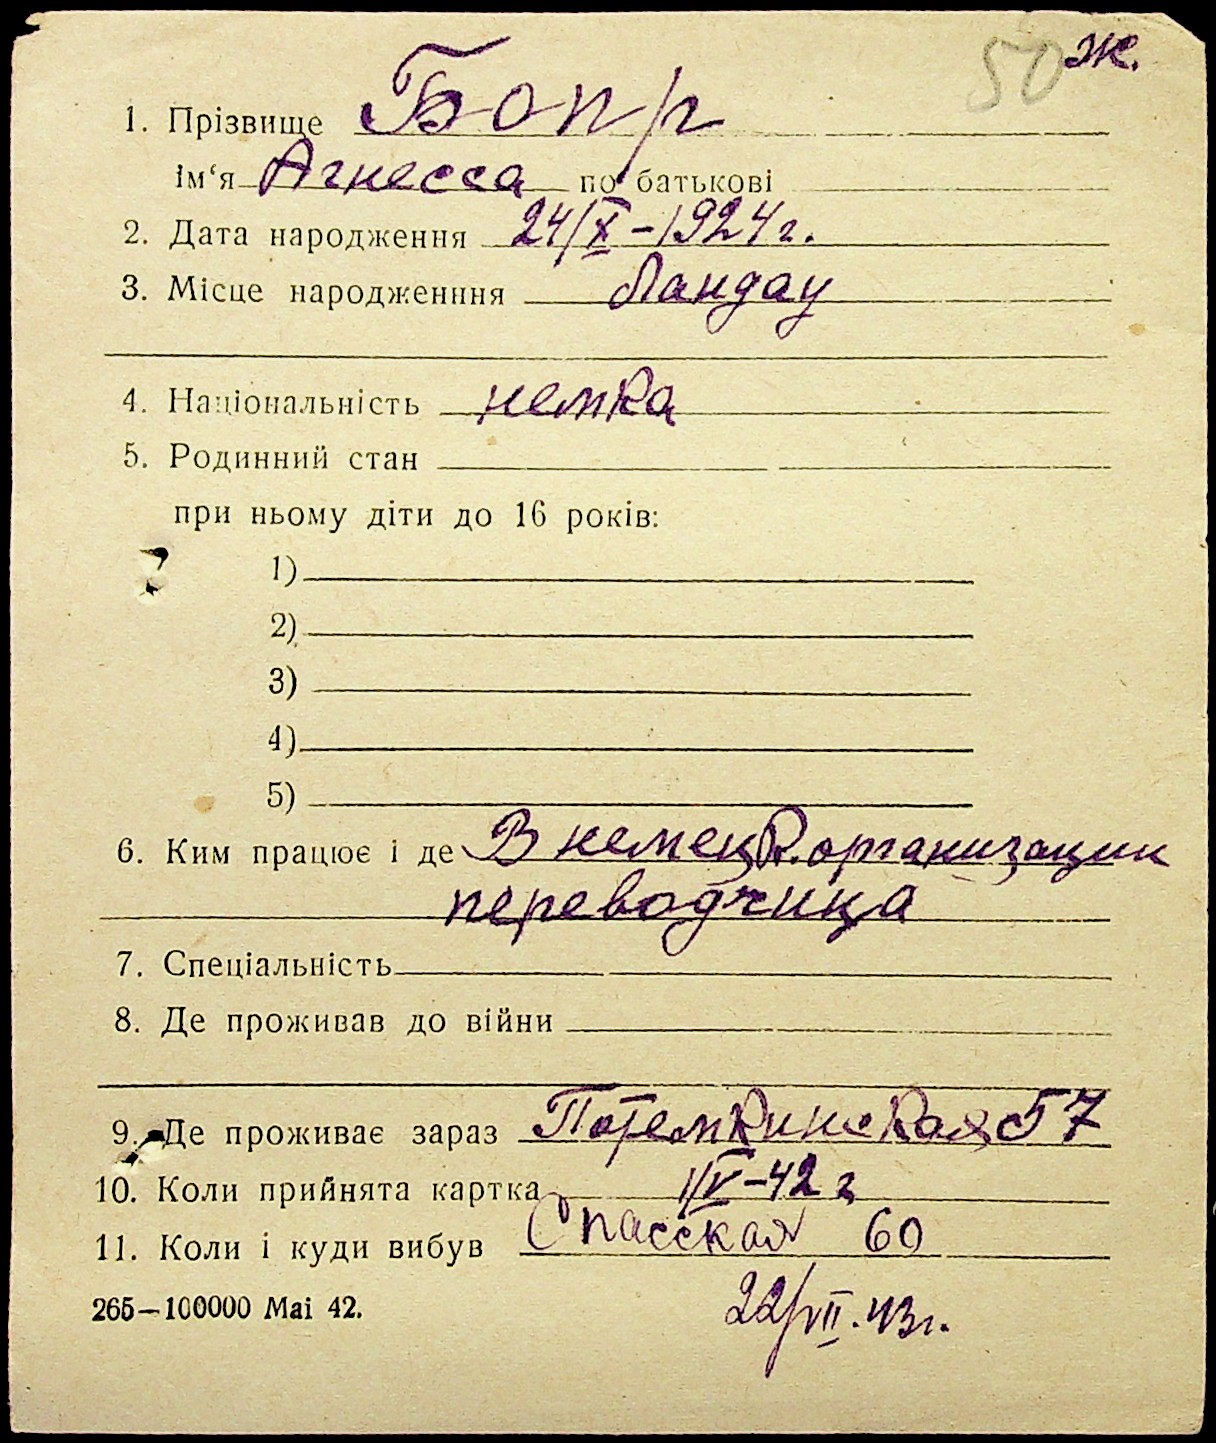 50 ж.
1. Прізвище Бопр
ім‘я Агнесса по батькові
2. Дата народження 24/X-1924 г.
3. Місце народженння Ландау
4. Національність немка
5. Родинний стан
при ньому діти до 16 років:
1)
2)
3)
4)
5)
6. Ким працює і де В немецк. организации
переводчица
7. Спеціальність
8. Де проживав до війни
9. Де проживає зараз Потемкинская 57
10. Коли прийнята картка 1/V-42 г
11. Коли і куди вибув Спасская 60
265—100000 Mai 42. 22/VII.43г.